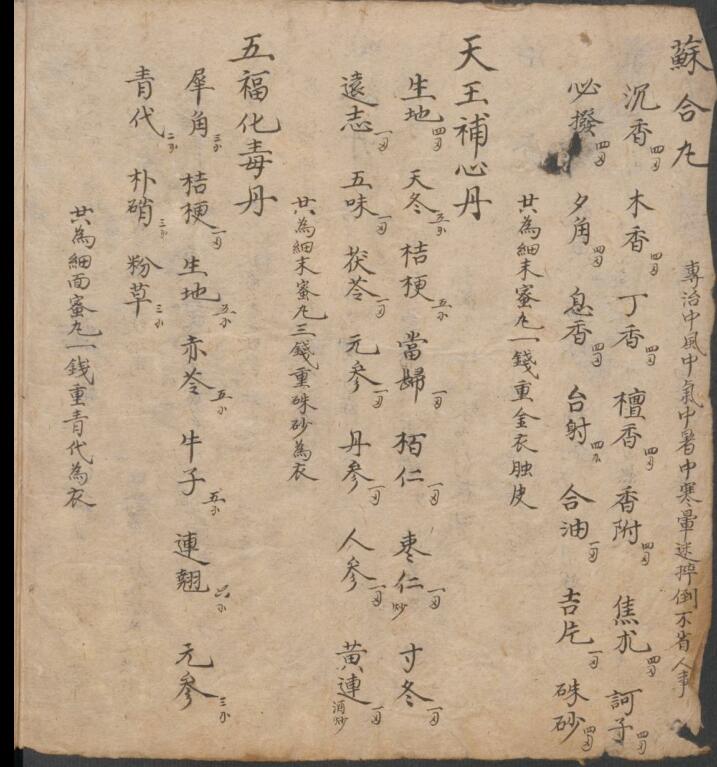 蘇合丸 專治中風中氣中暑中寒暈迷猝倒不省人事
沉香四刄 木香四刄 丁香四刄 檀香四刄 香附四刄 焦朮四刄 訶子四刄
必撥四刄 夕角四刄 息香四刄 台射四 合油一刄 吉片一刄 硃砂四刄
共為細末蜜丸一錢重金衣 皮
天王補心丹
生地四刄 天冬五分 桔梗五分 當婦一刄 栢仁一刄 枣仁炒一刄 寸冬一刄
遠志一刄 五味一刄 茯苓一刄 元參一刄 丹參一刄 人參一刄 黃連酒炒一刄
共為細末蜜丸三錢重硃砂為衣
五福化毒丹
犀角三分 桔梗一刄 生地五分 赤苓五分 牛子五分 連翹六分 元參三分
青代二分 朴硝三分 粉草三分
共為細面蜜丸一錢重青代為衣